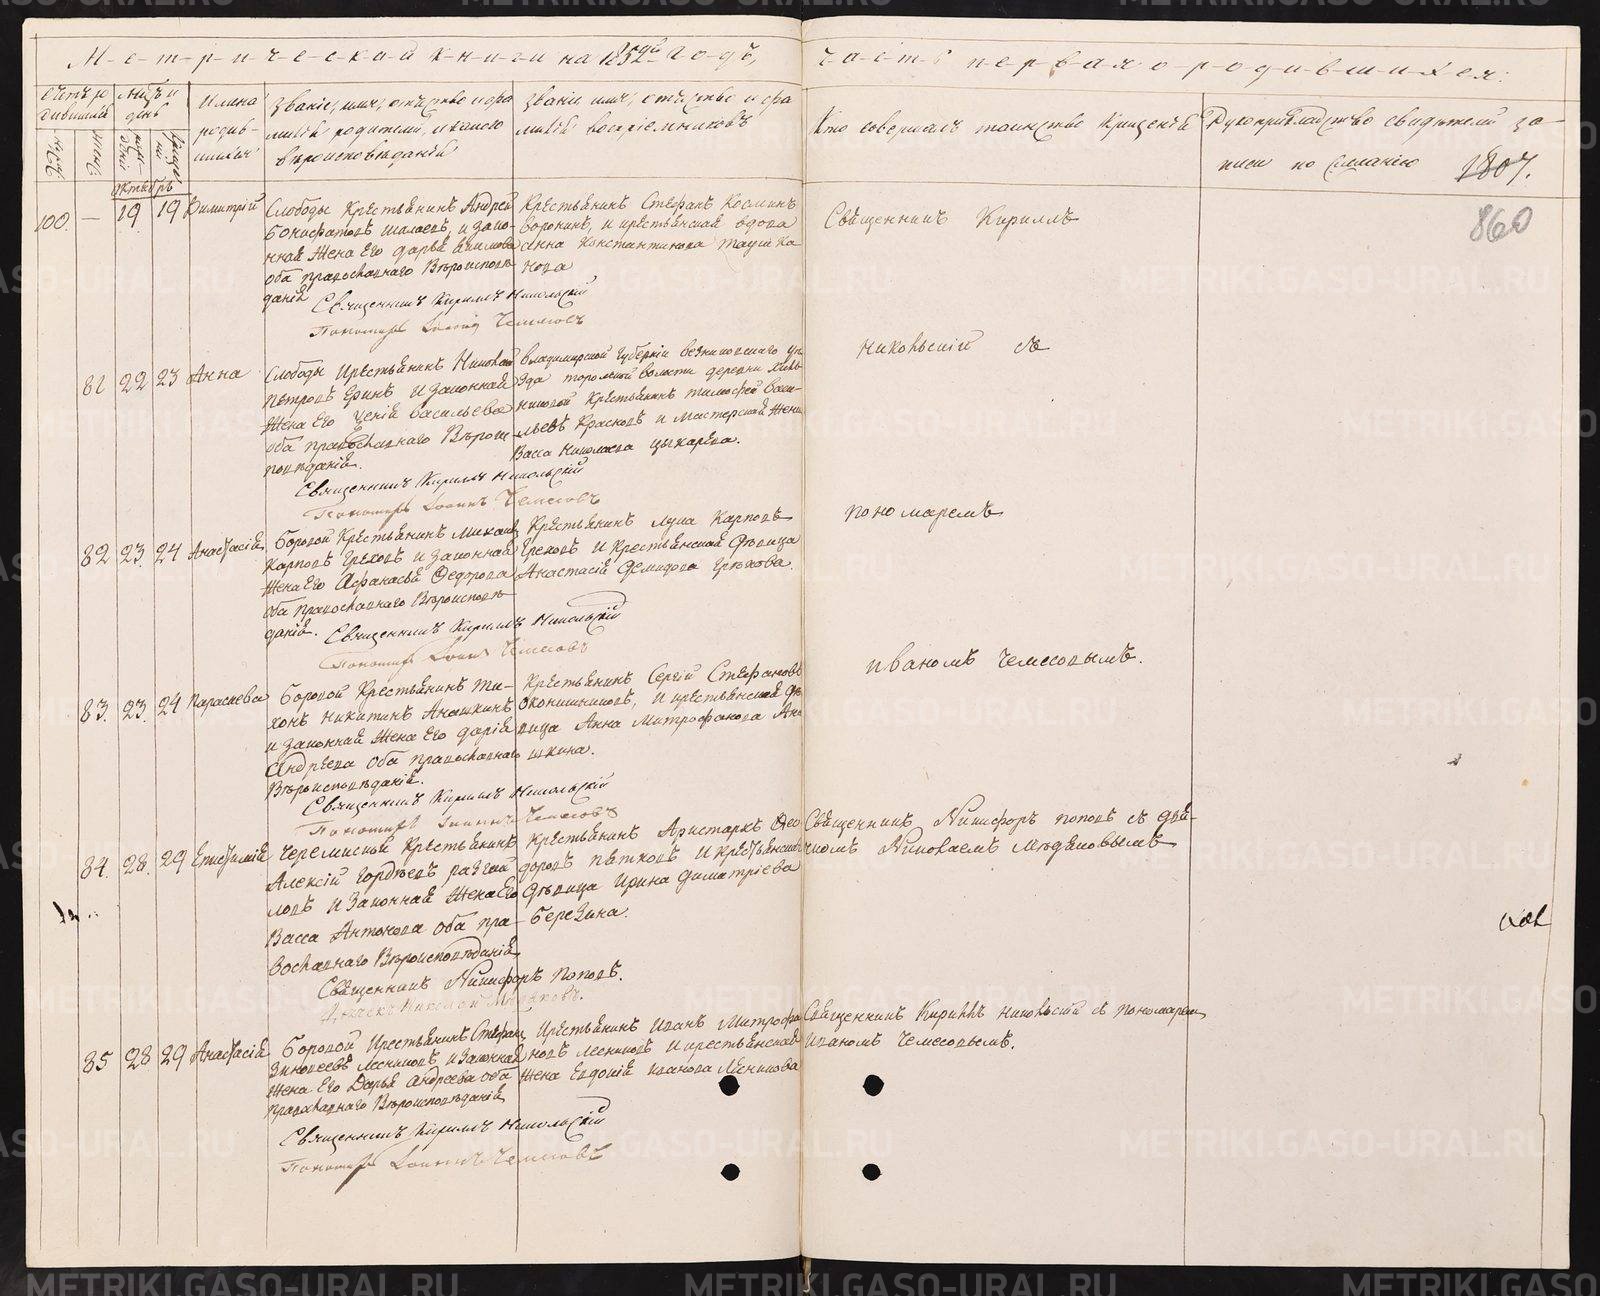 Метрической книги на 1852й годъ,
часть первая о родившихся:
Счетъ родившихся
Мцъ и день
Имена родившихся
Званіе, имя, отчество и фамилія родителей, и какого вѣроисповѣданія
Званіе, имя, отчество и фамилія воспріемниковъ
Кто совершалъ таинство крещенія
Рукоприкладство свидѣтелей записи по желанію
1807.
860
Октябрь
100. — 19 19 Димитрій
Слободы Крестьянинъ Андрей
Бонифатовъ Шалаевъ, и зако-
нная жена его Дарья Екимова
оба православнаго вѣроисповѣ
данія
Крестьянинъ Стефанъ Козминъ
Воронинъ, и крестьянская вдова
Анна Константинова
Священникъ Кириллъ Никольскій
Пономарь Іоаннъ Чемесовъ
Священникъ Кириллъ
81 22 23 Анна
Слободы Крестьянинъ Николай
Петровъ Еринъ и законная
жена его Васильева
оба православнаго вѣрои-
сповѣданія.
Владимирской губерніи Везниковскаго уѣ
зда волости деревни
Крестьянинъ Тимофей Васи-
льевъ Красновъ и мастерская жена
Васса Николаева Цыкарева.
Священникъ Кириллъ Никольскій
Пономарь Іоаннъ Чемесовъ
Никольскій съ
82 23. 24 Анастасія
Боровой Крестьянинъ Михаилъ
Карповъ Грѣховъ и законная
жена его Афанасья Федорова
оба православнаго вѣроисповѣ
данія.
Крестьянинъ Лука Карповъ
Греховъ и крестьянская дѣвица
Анастасія Демидова Грѣхова.
Священникъ Кириллъ Никольскій
Пономарь Іоаннъ Чемесовъ
пономаремъ
83. 23. 24 Параскева
Боровой Крестьянинъ Ти-
хонъ Никитинъ Анашкинъ
и законная жена его Дарія
Андреева оба православнаго
вѣроисповѣданія.
Крестьянинъ Сергій Стефановъ
Оконишниковъ, и крестьянская дѣ
вица Анна Митрофанова Ана
шкина.
Священникъ Кириллъ Никольскій
Пономарь Іоаннъ Чемесовъ
Иваномъ Чемесовымъ.
84. 28. 29 Епистимія
Черемисской Крестьянинъ
Алексій Гордѣевъ Разгай
ловъ и законная жена его
Васса Антонова оба пра-
вославнаго вѣроисповѣданія
Крестьянинъ Аристархъ Фео
доровъ Пѣтковъ и крестьянская
дѣвица Ирина Димитріева
Березина.
Священникъ Никифоръ Поповъ.
Священникъ Никифоръ Поповъ съ дья-
чкомъ Николаемъ
85 28 29 Анастасія
Боровой Крестьянинъ Стефанъ
Зиновеевъ Лесниковъ и законная
жена его Дарья Андреева оба
православнаго вѣроисповѣданія
Крестьянинъ Иванъ Митрофа
новъ Лесниковъ и крестьянская
жена Евдокія Иванова Лесникова
Священникъ Кириллъ Никольскій
Пономарь Іоаннъ Чемесовъ
Священникъ Кириллъ Никольскій съ пономаремъ
Иваномъ Чемесовымъ.
METRIKI.GASO-URAL.RU